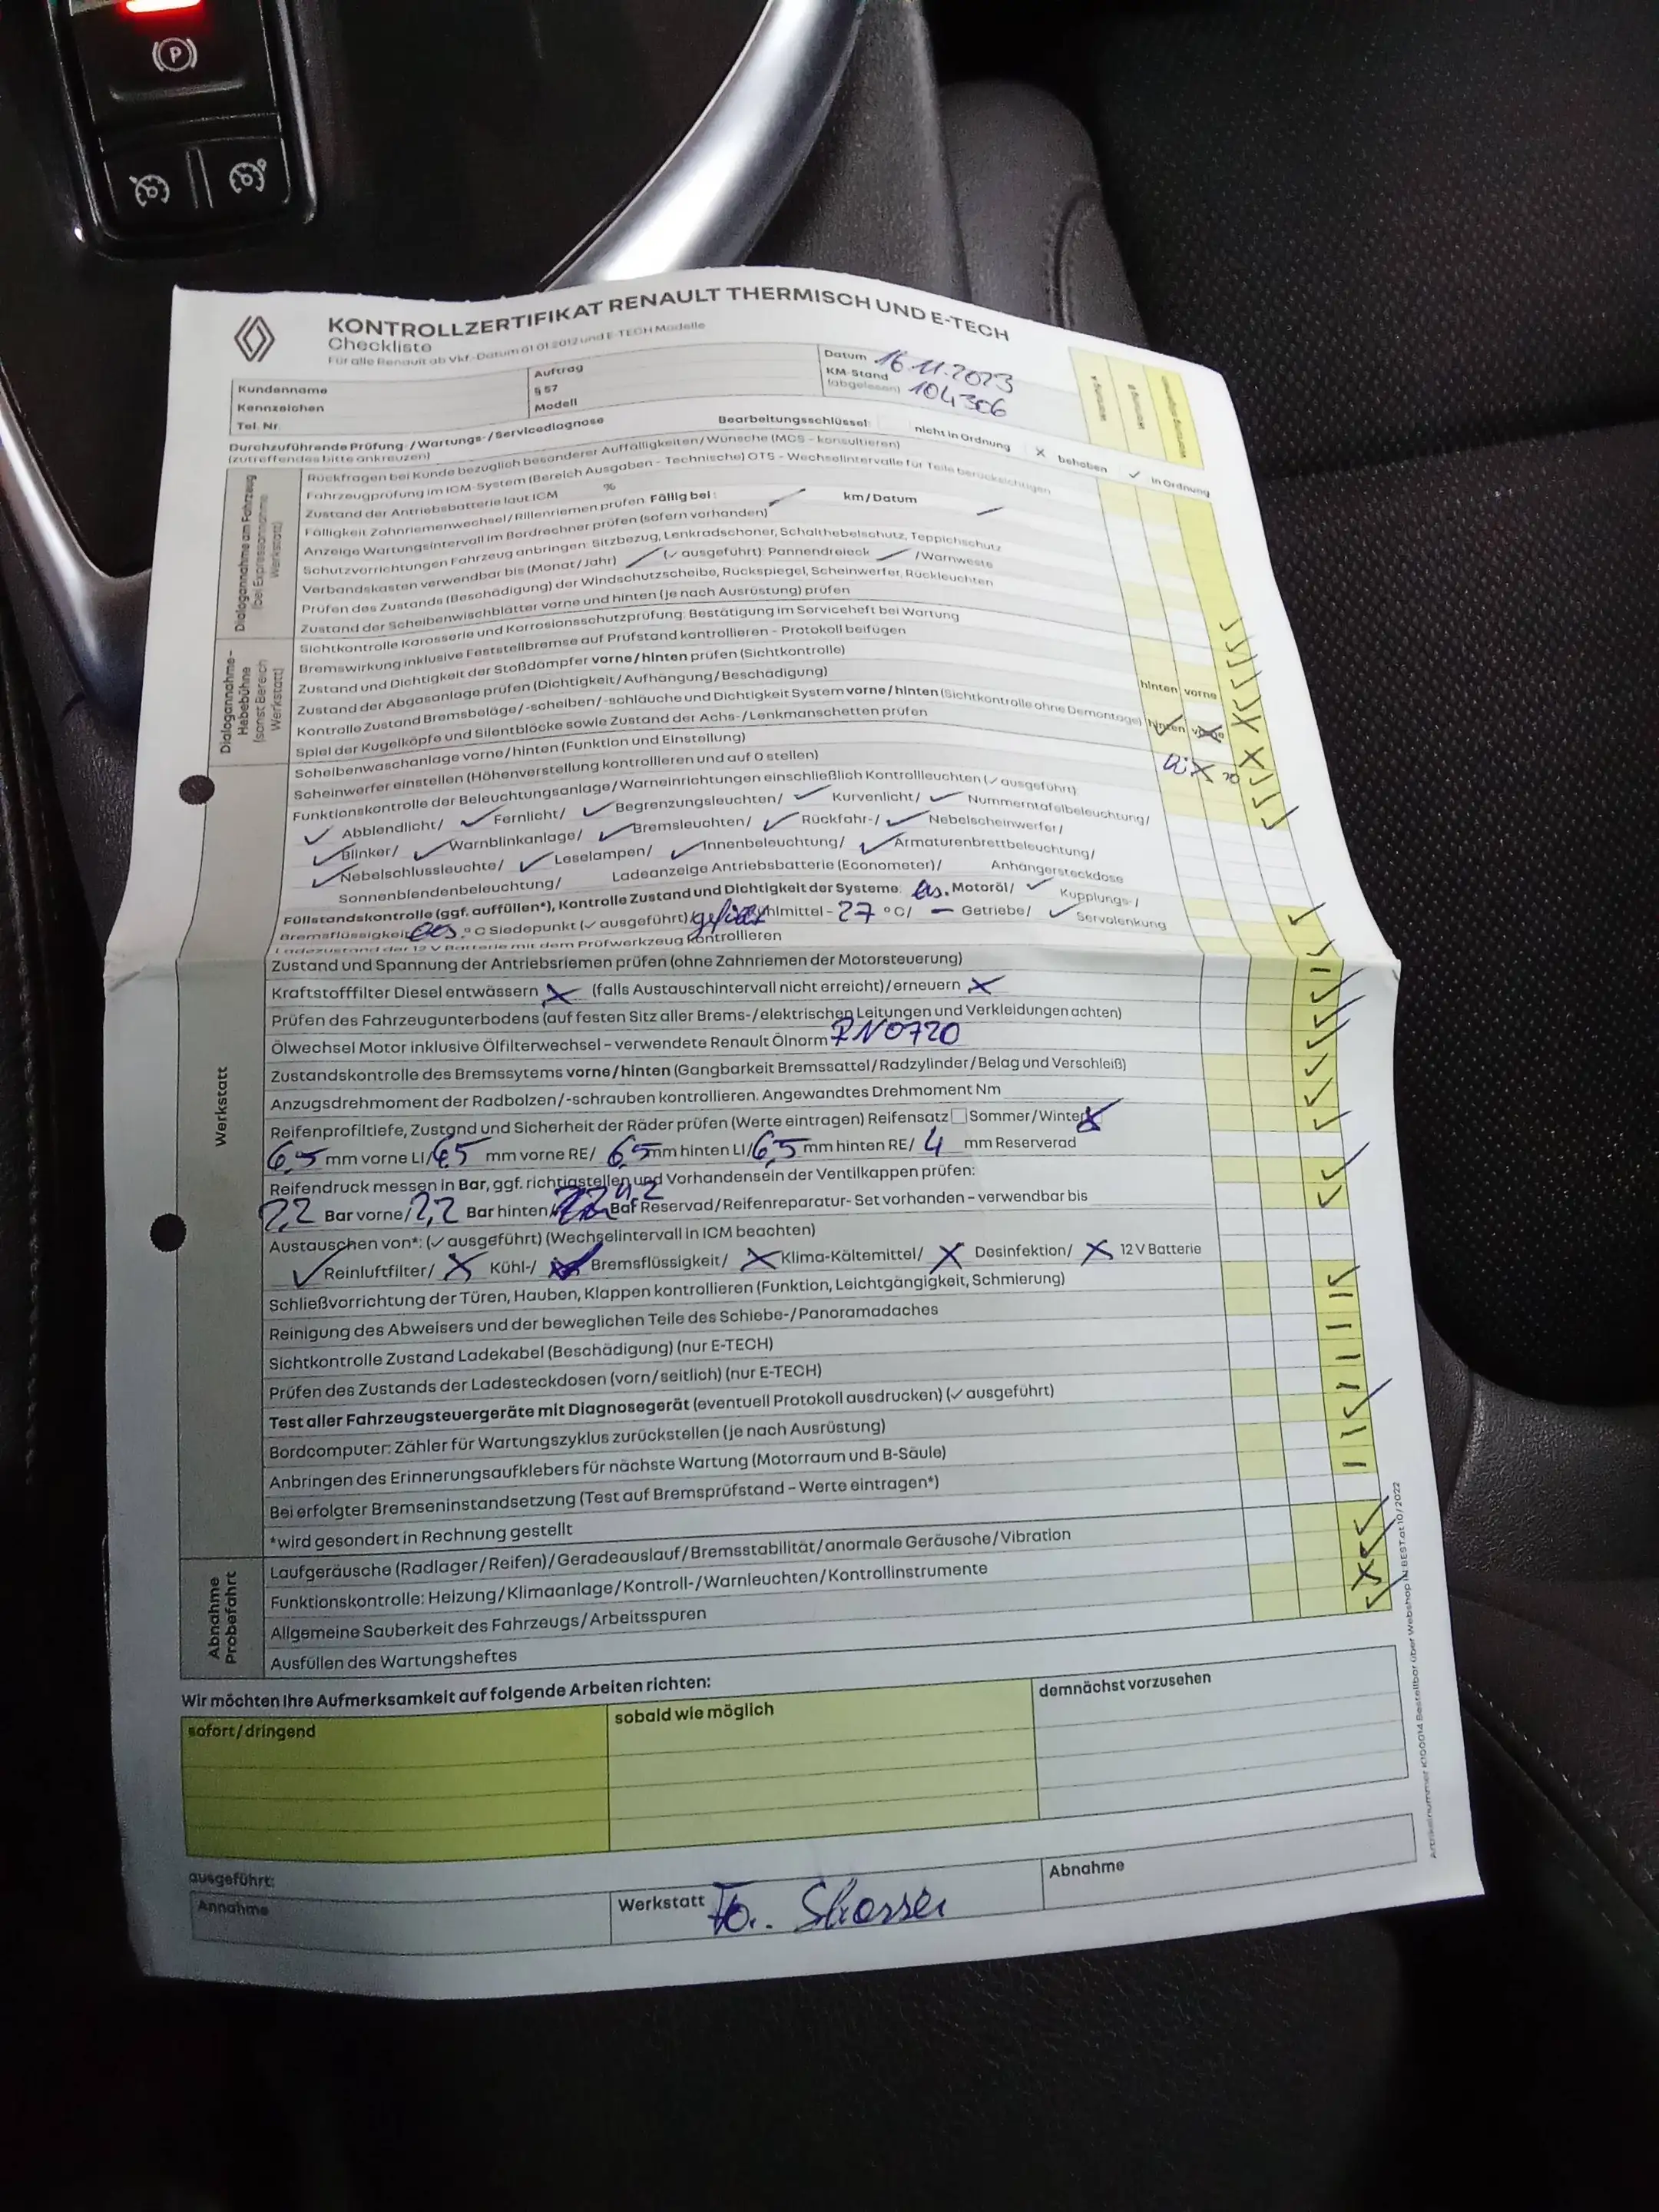 P
KONTROLLZERTIFIKAT RENAULT THERMISCH UND E-TECH
Checkliste
Für alle Renault ab Vkf.-Datum 01.01.2012 und E-TECH Modelle
Kundenname
Kennzeichen
Tel. Nr.
Auftrag
§ 57
Modell
Datum 16.11.2023
KM-Stand
(abgelesen) 104306
Durchzuführende Prüfung-/Wartungs-/Servicediagnose
(zutreffendes bitte ankreuzen)
Bearbeitungsschlüssel: nicht in Ordnung X behoben ✓ in Ordnung
Dialogannahme am Fahrzeug
(bei Expressannahme
Werkstatt)
Rückfragen bei Kunde bezüglich besonderer Auffälligkeiten/Wünsche (MCS - konsultieren)
Fahrzeugprüfung im ICM-System (Bereich Ausgaben - Technische) OTS - Wechselintervalle für Teile berücksichtigen
Zustand der Antriebsbatterie laut ICM %
Fälligkeit Zahnriemenwechsel/Rillenriemen prüfen Fällig bei: km/Datum
Anzeige Wartungsintervall im Bordrechner prüfen (sofern vorhanden)
Schutzvorrichtungen Fahrzeug anbringen: Sitzbezug, Lenkradschoner, Schalthebelschutz, Teppichschutz
Verbandskasten verwendbar bis (Monat/Jahr) (✓ ausgeführt): Pannendreieck /Warnweste
Prüfen des Zustands (Beschädigung) der Windschutzscheibe, Rückspiegel, Scheinwerfer, Rückleuchten
Zustand der Scheibenwischblätter vorne und hinten (je nach Ausrüstung) prüfen
Dialogannahme-
Hebebühne
(sonst Bereich
Werkstatt)
Sichtkontrolle Karosserie und Korrosionsschutzprüfung: Bestätigung im Serviceheft bei Wartung
Bremswirkung inklusive Feststellbremse auf Prüfstand kontrollieren - Protokoll beifügen
Zustand und Dichtigkeit der Stoßdämpfer vorne/hinten prüfen (Sichtkontrolle)
Zustand der Abgasanlage prüfen (Dichtigkeit/Aufhängung/Beschädigung)
hinten vorne
Kontrolle Zustand Bremsbeläge/-scheiben/-schläuche und Dichtigkeit System vorne/hinten (Sichtkontrolle ohne Demontage) hinten vorne
Spiel der Kugelköpfe und Silentblöcke sowie Zustand der Achs-/Lenkmanschetten prüfen
Werkstatt
Scheibenwaschanlage vorne/hinten (Funktion und Einstellung)
Scheinwerfer einstellen (Höhenverstellung kontrollieren und auf 0 stellen)
Funktionskontrolle der Beleuchtungsanlage/Warneinrichtungen einschließlich Kontrollleuchten (✓ ausgeführt):
✓ Abblendlicht/ ✓ Fernlicht/ ✓ Begrenzungsleuchten/ ✓ Kurvenlicht/ ✓ Nummerntafelbeleuchtung/
✓ Blinker/ ✓ Warnblinkanlage/ ✓ Bremsleuchten/ ✓ Rückfahr-/ ✓ Nebelscheinwerfer/
✓ Nebelschlussleuchte/ ✓ Leselampen/ ✓ Innenbeleuchtung/ ✓ Armaturenbrettbeleuchtung/
Sonnenblendenbeleuchtung/ Ladeanzeige Antriebsbatterie (Econometer)/ Anhängersteckdose
Füllstandskontrolle (ggf. auffüllen*), Kontrolle Zustand und Dichtigkeit der Systeme: Motoröl/ ✓ Kupplungs-/
Bremsflüssigkeit °C Siedepunkt (✓ ausgeführt)/ Kühlmittel -27 °C/ – Getriebe/ ✓ Servolenkung
Ladezustand der 12 V Batterie mit dem Prüfwerkzeug kontrollieren
Zustand und Spannung der Antriebsriemen prüfen (ohne Zahnriemen der Motorsteuerung)
Kraftstofffilter Diesel entwässern X (falls Austauschintervall nicht erreicht)/erneuern X
Prüfen des Fahrzeugunterbodens (auf festen Sitz aller Brems-/elektrischen Leitungen und Verkleidungen achten)
Ölwechsel Motor inklusive Ölfilterwechsel – verwendete Renault Ölnorm RN0720
Zustandskontrolle des Bremssytems vorne/hinten (Gangbarkeit Bremssattel/Radzylinder/Belag und Verschleiß)
Anzugsdrehmoment der Radbolzen/-schrauben kontrollieren. Angewandtes Drehmoment Nm
Reifenprofiltiefe, Zustand und Sicherheit der Räder prüfen (Werte eintragen) Reifensatz Sommer/Winter X
6,5 mm vorne LI/ 6,5 mm vorne RE/ 6,5 mm hinten LI/ 6,5 mm hinten RE/ 4 mm Reserverad
Reifendruck messen in Bar, ggf. richtigstellen und Vorhandensein der Ventilkappen prüfen:
2,2 Bar vorne/ 2,2 Bar hinten/ 4,2 Bar Reservad/Reifenreparatur- Set vorhanden – verwendbar bis
Austauschen von*: (✓ ausgeführt) (Wechselintervall in ICM beachten)
✓ Reinluftfilter/ X Kühl-/ Bremsflüssigkeit/ X Klima-Kältemittel/ X Desinfektion/ X 12 V Batterie
Schließvorrichtung der Türen, Hauben, Klappen kontrollieren (Funktion, Leichtgängigkeit, Schmierung)
Reinigung des Abweisers und der beweglichen Teile des Schiebe-/Panoramadaches
Sichtkontrolle Zustand Ladekabel (Beschädigung) (nur E-TECH)
Prüfen des Zustands der Ladesteckdosen (vorn/seitlich) (nur E-TECH)
Test aller Fahrzeugsteuergeräte mit Diagnosegerät (eventuell Protokoll ausdrucken) (✓ ausgeführt)
Bordcomputer: Zähler für Wartungszyklus zurückstellen (je nach Ausrüstung)
Anbringen des Erinnerungsaufklebers für nächste Wartung (Motorraum und B-Säule)
Bei erfolgter Bremseninstandsetzung (Test auf Bremsprüfstand – Werte eintragen*)
*wird gesondert in Rechnung gestellt
Abnahme
Probefahrt
Laufgeräusche (Radlager/Reifen)/Geradeauslauf/Bremsstabilität/anormale Geräusche/Vibration
Funktionskontrolle: Heizung/Klimaanlage/Kontroll-/Warnleuchten/Kontrollinstrumente
Allgemeine Sauberkeit des Fahrzeugs/Arbeitsspuren
Ausfüllen des Wartungsheftes
Wir möchten Ihre Aufmerksamkeit auf folgende Arbeiten richten:
sofort/dringend
sobald wie möglich
demnächst vorzusehen
ausgeführt:
Annahme
Werkstatt
Abnahme